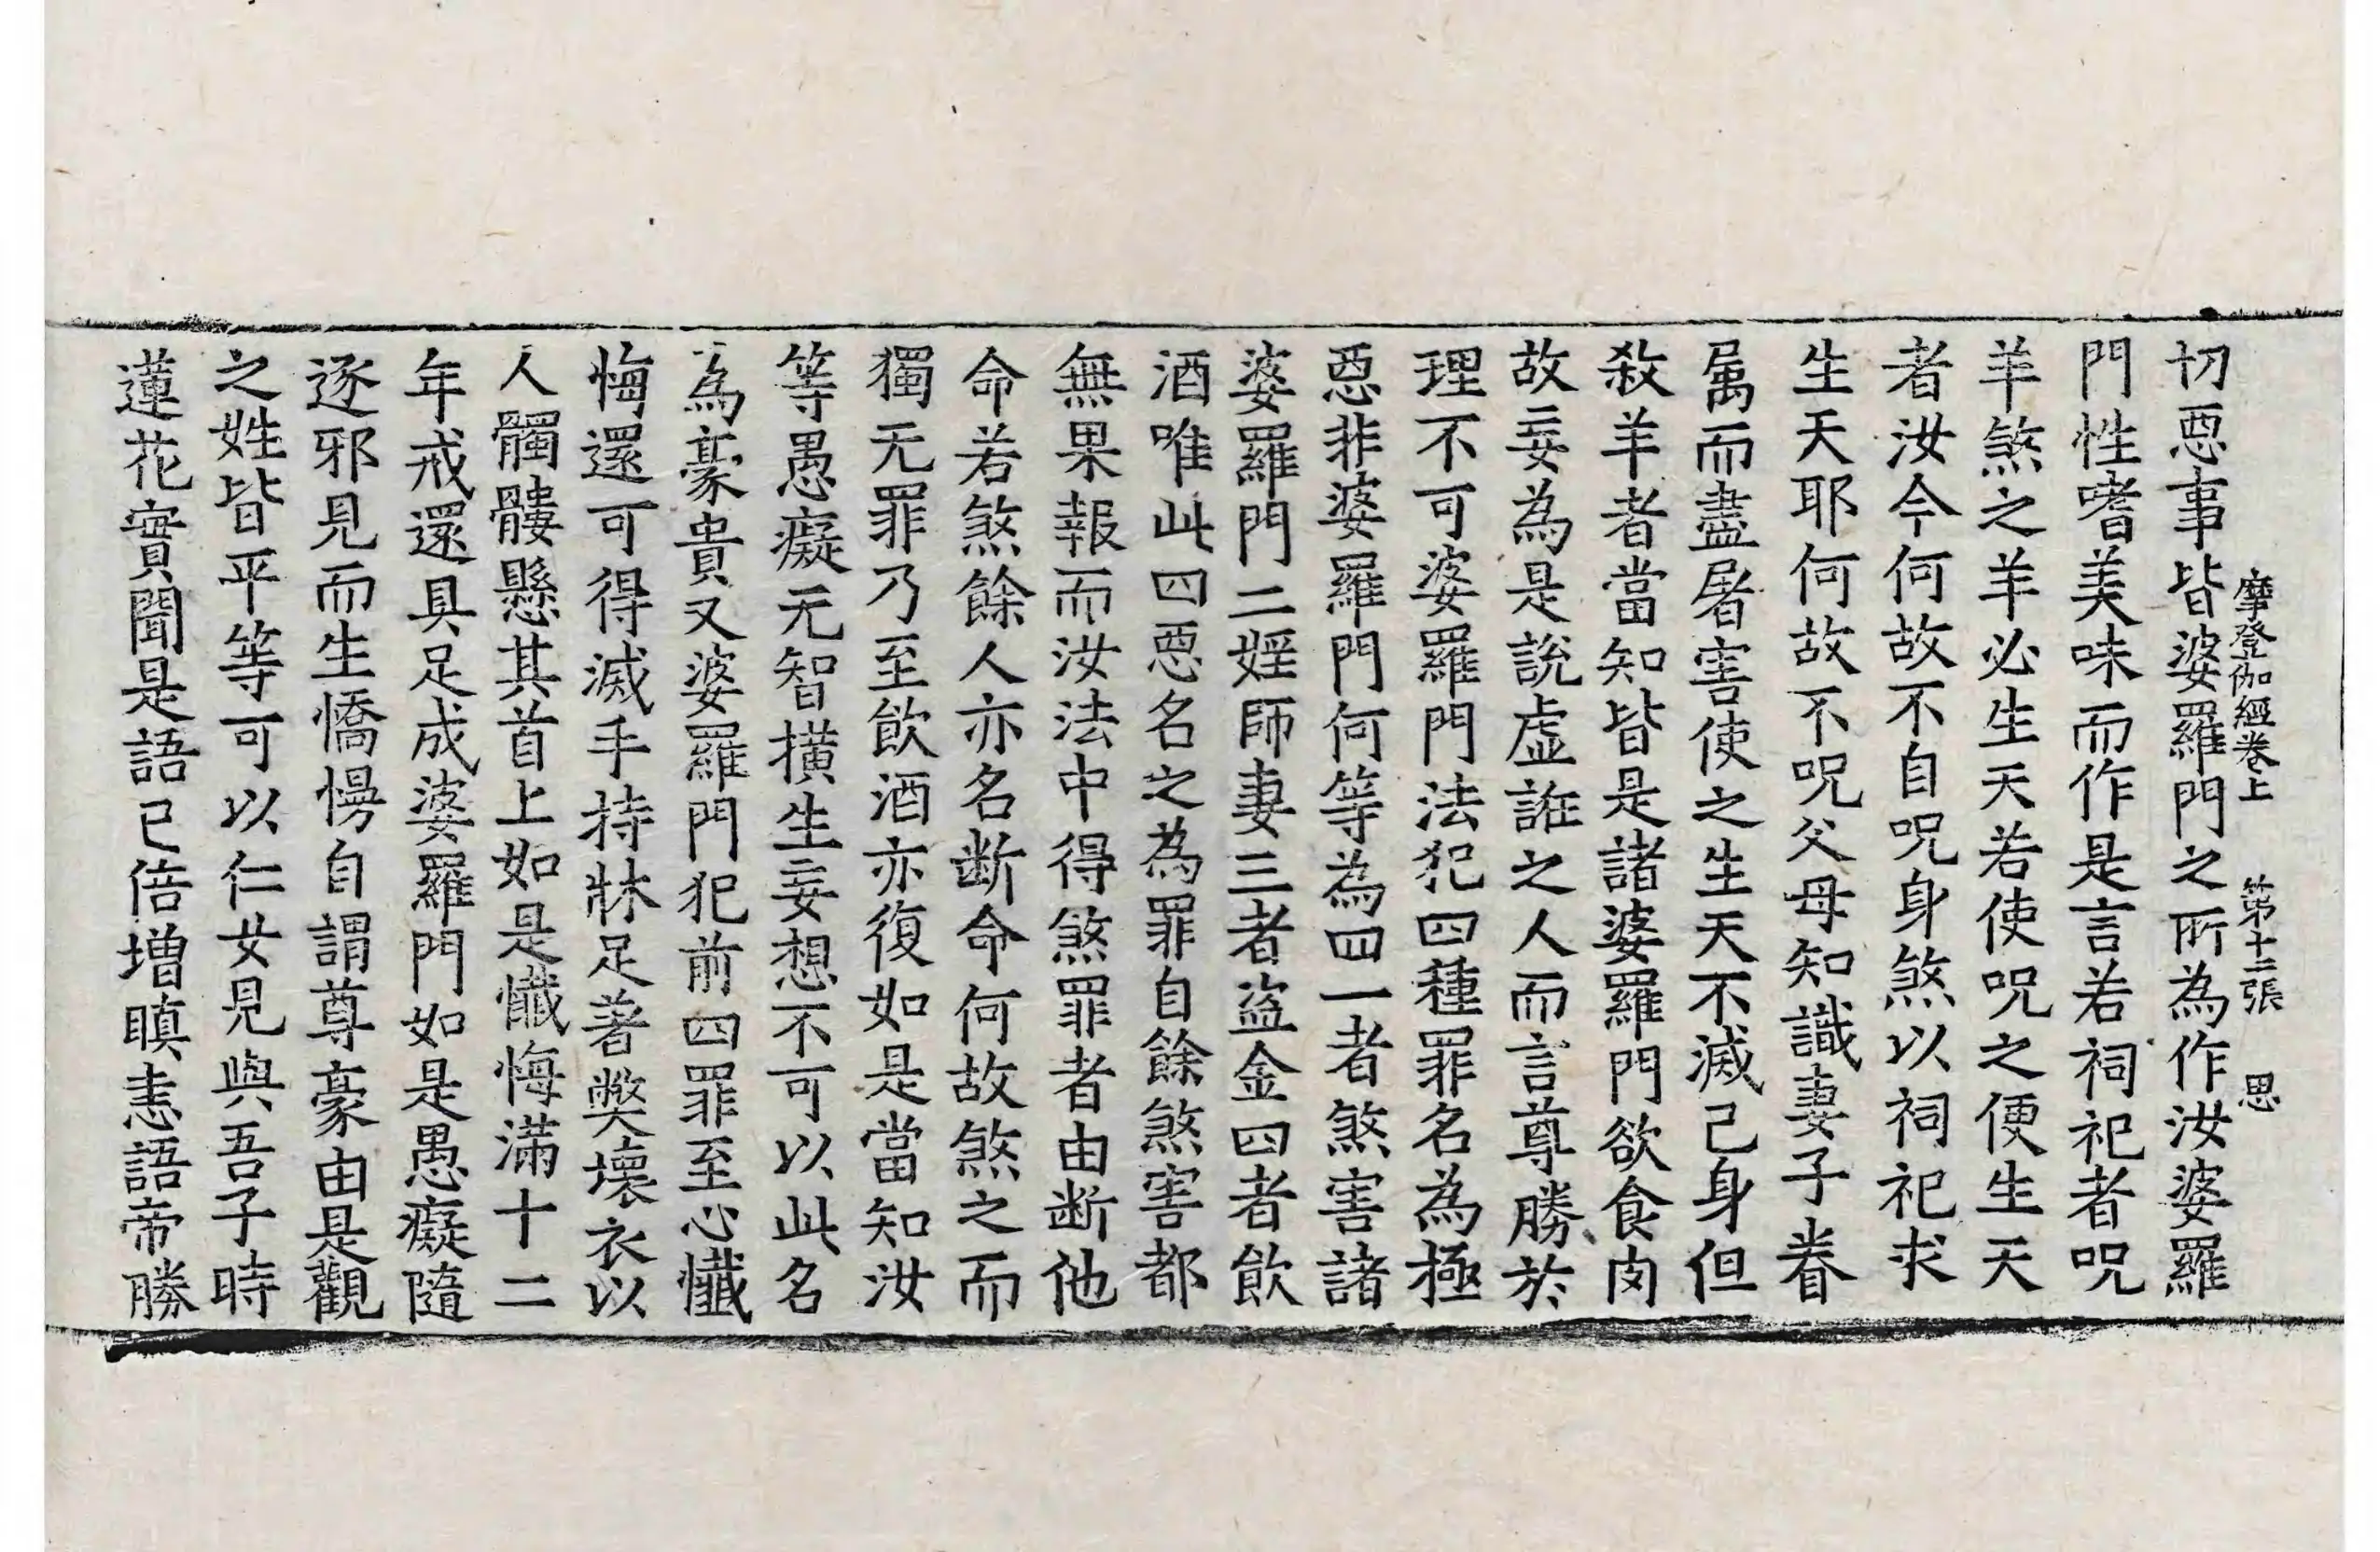 摩登伽經卷上 第十二張 思
切惡事皆婆羅門之所為作汝婆羅
門性嗜美味而作是言若祠祀者呪
羊煞之羊必生天若使呪之便生天
者汝今何故不自呪身煞以祠祀求
生天耶何故不呪父母知識妻子眷
属而盡屠害使之生天不滅己身但
殺羊者當知皆是諸婆羅門欲食肉
故妄為是說虛誑之人而言尊勝於
理不可婆羅門法犯四種罪名為極
惡非婆羅門何等為四一者煞害諸
婆羅門二婬師妻三者盜金四者飲
酒唯此四惡名之為罪自餘煞害都
無果報而汝法中得煞罪者由断他
命若煞餘人亦名断命何故煞之而
獨无罪乃至飲酒亦復如是當知汝
等愚癡无智橫生妄想不可以此名
為豪貴又婆羅門犯前四罪至心懺
悔還可得滅手持牀足著弊壞衣以
人髑髏懸其首上如是懺悔滿十二
年戒還具足成婆羅門如是愚癡隨
逐邪見而生憍慢自謂尊豪由是觀
之姓皆平等可以仁女見與吾子時
蓮花實聞是語已倍增瞋恚語帝勝